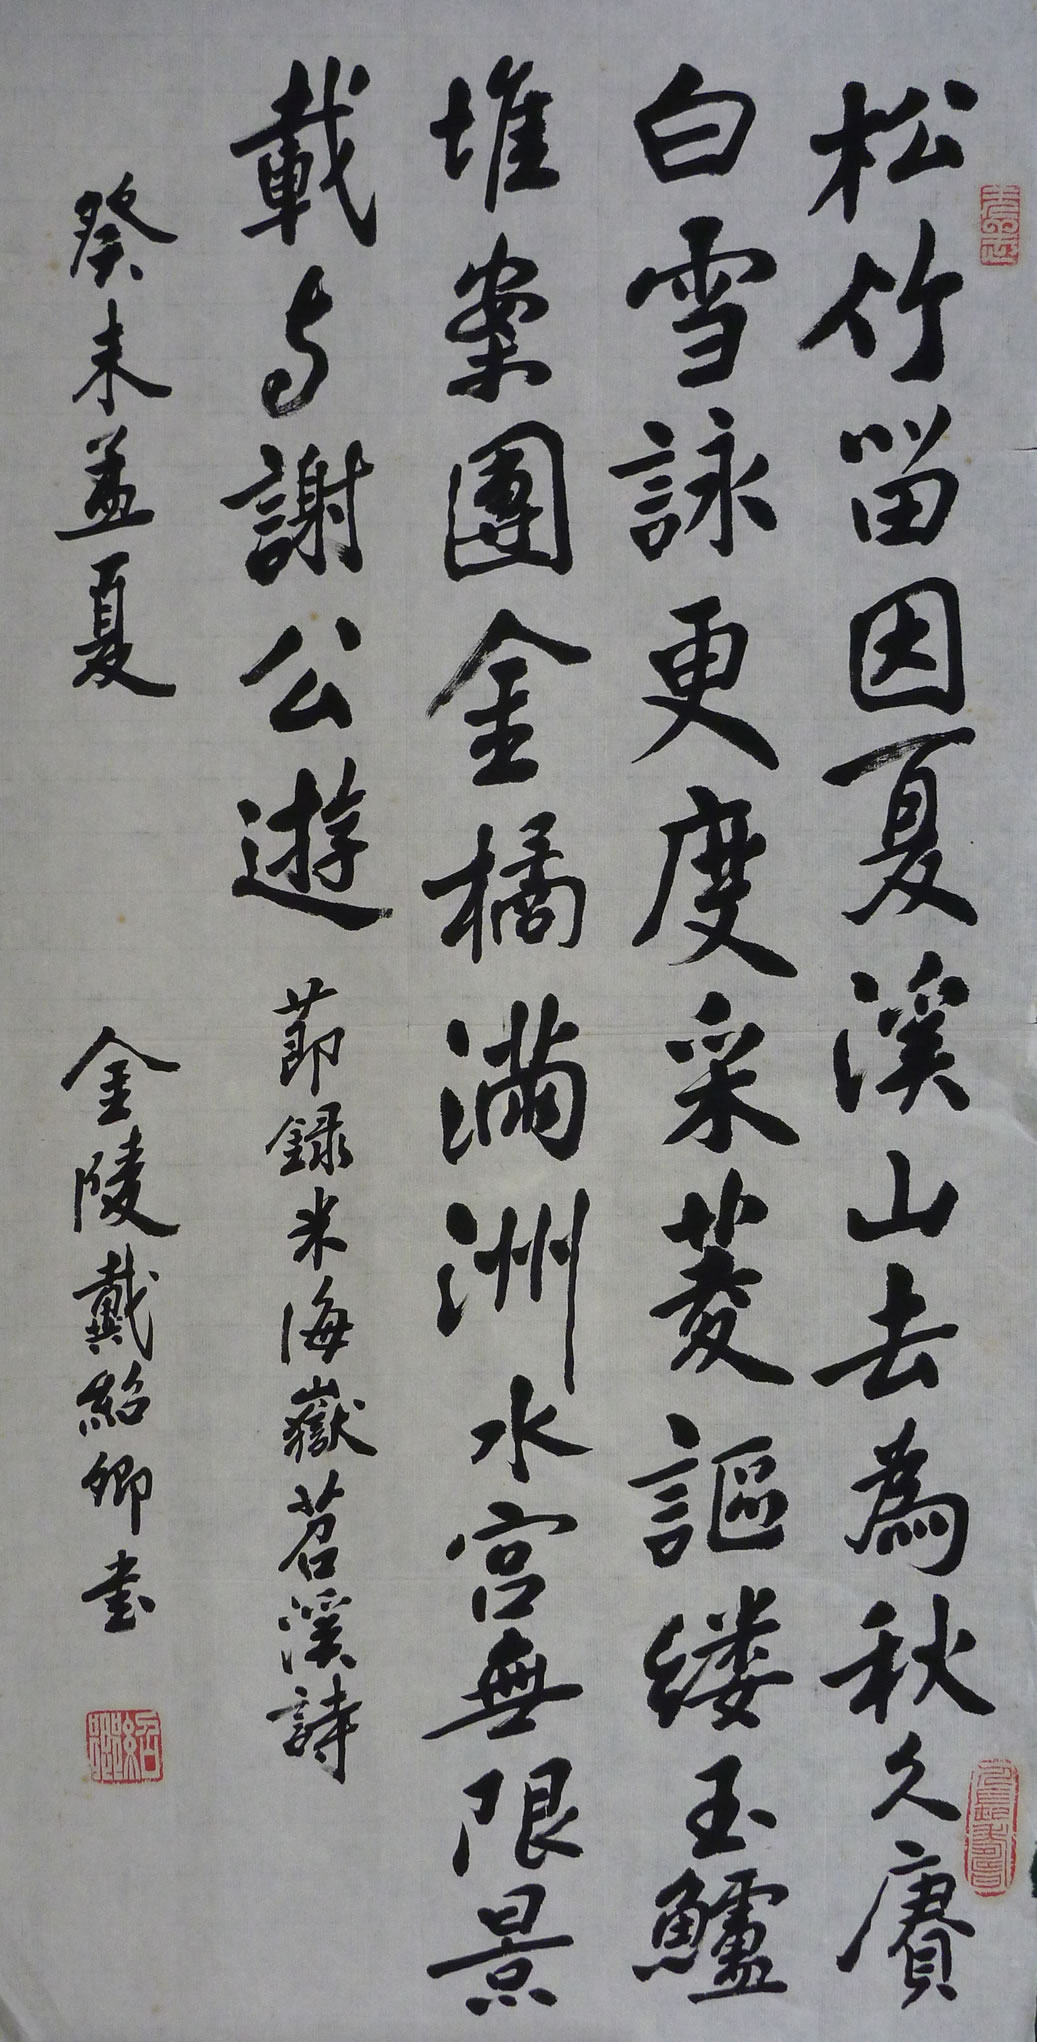 松竹留因夏溪山去為秋久賡
白雪詠更度采菱謳缕玉鱸
堆案團金橘滿洲水宮無限景
載与謝公遊 節錄米海嶽苕溪詩
癸未孟夏 金陵戴紹卿书